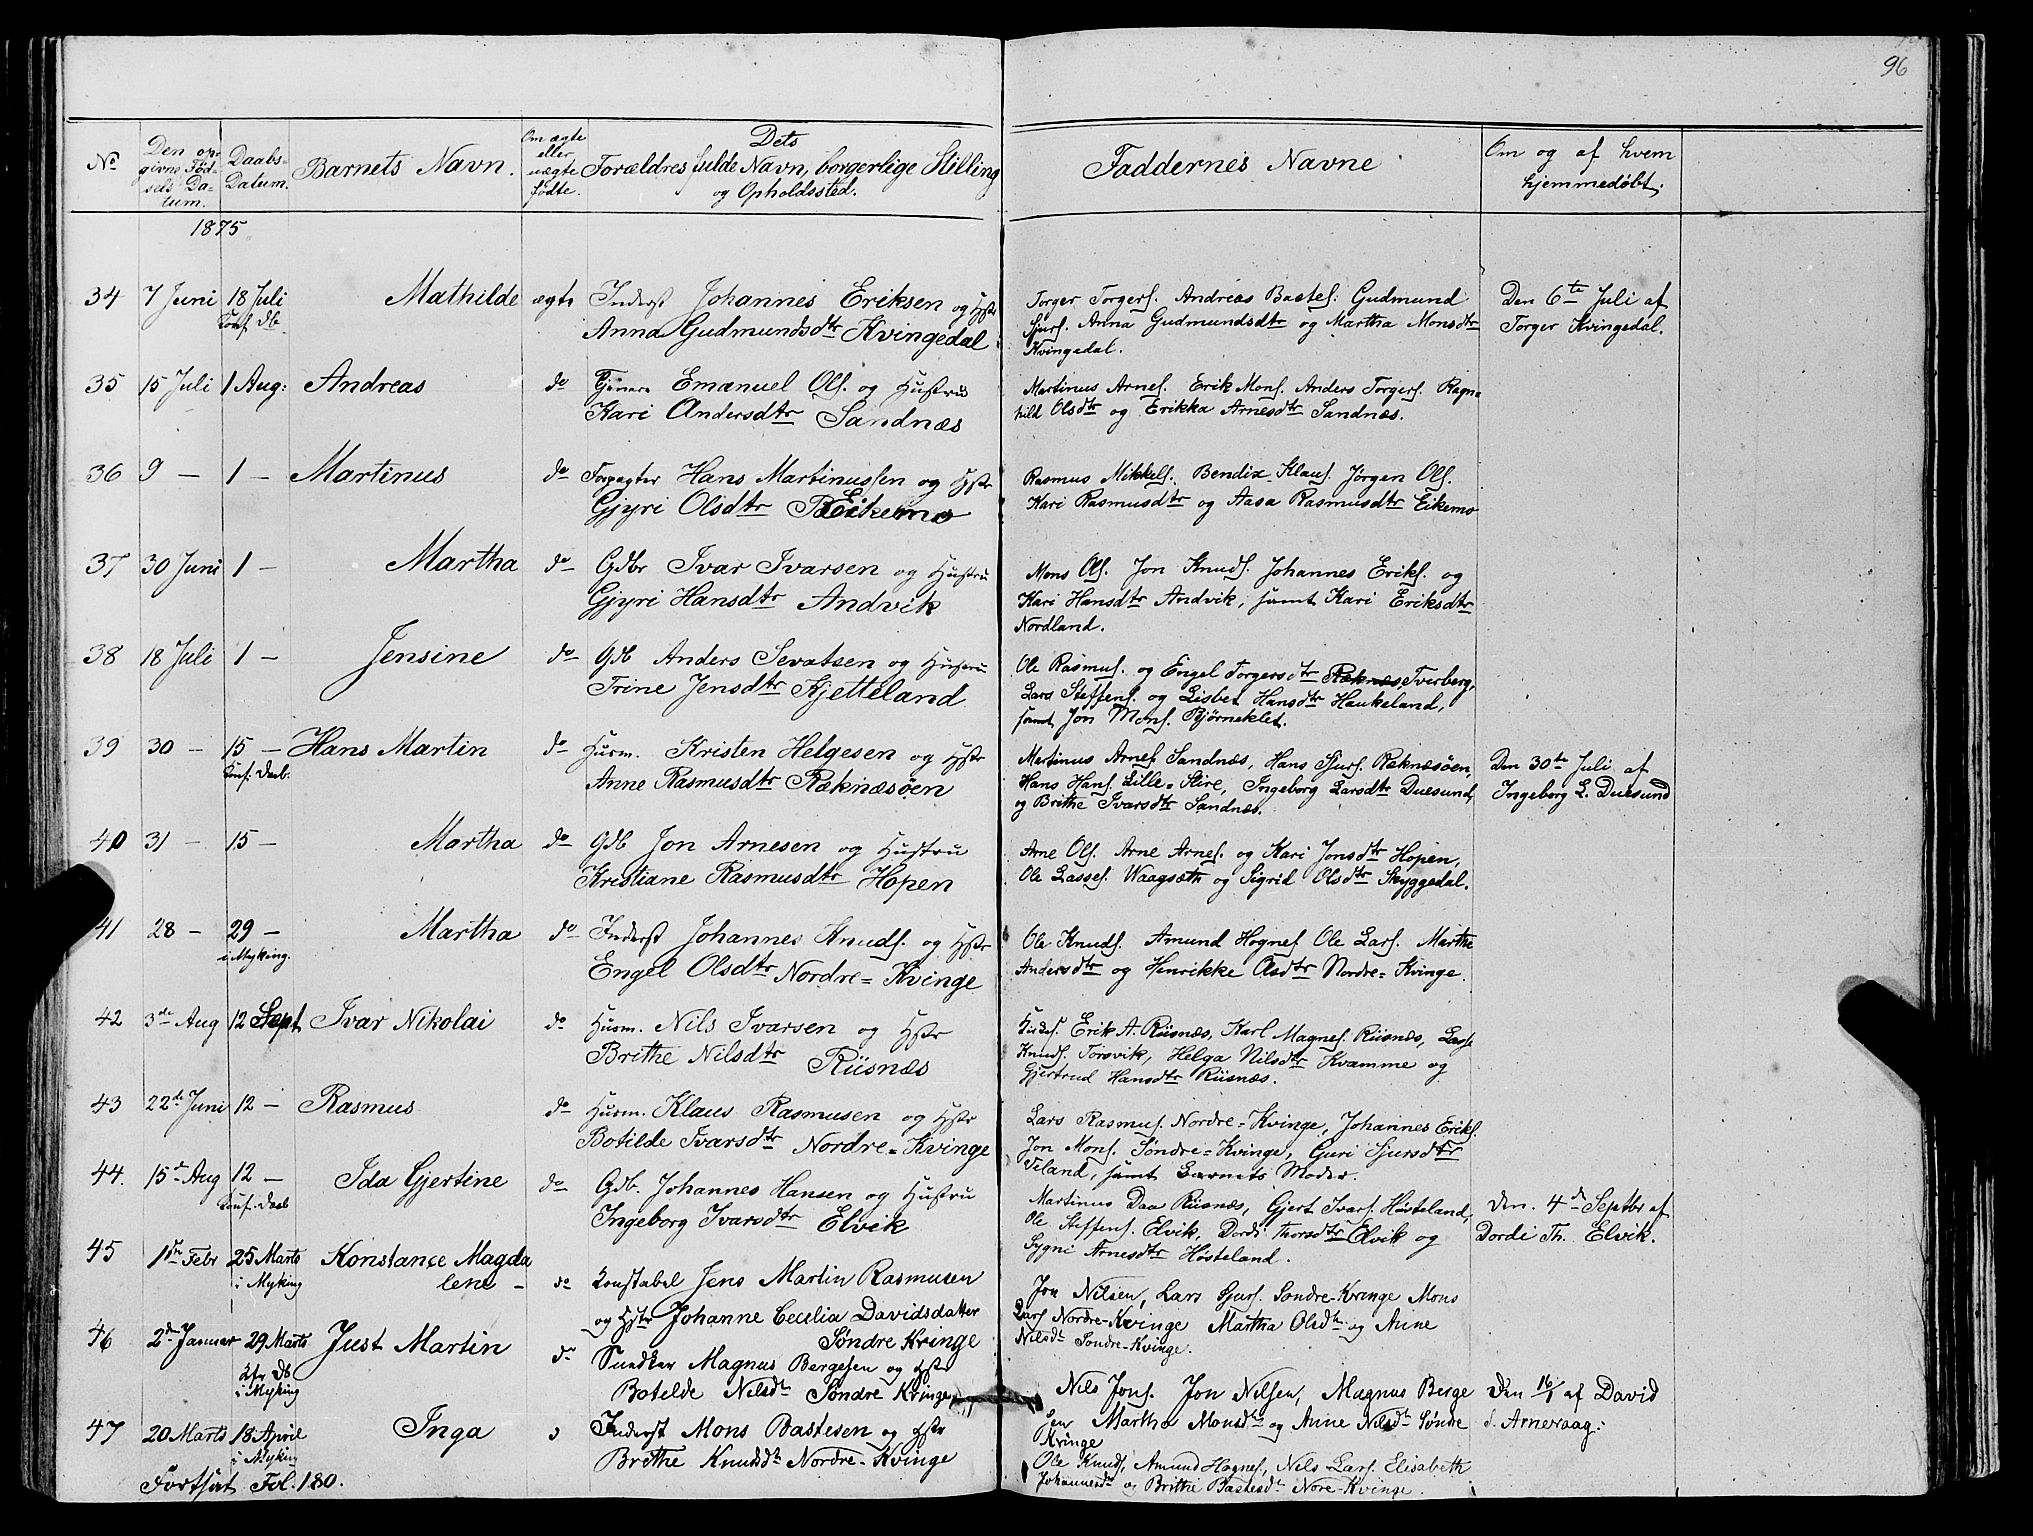 96
No
Den op-
givne Fød-
sels Da-
tum.
Daabs-
Datum.
Barnets Navn.
Om ægte
eller
uægte
fødte.
Dets
Forældres fulde Navn, borgerlige Stilling
og Opholdssted.
Faddernes Navne
Om og af hvem
hjemmedøbt.
1875
34 7 Juni 18 Juli Mathilde ægte Inderst Johannes Eriksen og Hstr
Konf. Db.
Anna Gudmundsdtr Kvingedal
Torger Torgers. Andreas Bastes. Gudmund
Sjurs. Anna Gudmundsdtr og Martha Monsdtr
Kvingedal.
Den 6te Juli af
Torger Kvingedal.
35 15 Juli 1 Aug: Andreas do Emanuel Ols. og Hustru
Kari Andersdtr Sandnæs
Martinus Arnes. Erik Mons. Anders Torgers. Ragn-
hild Olsdtr og Erikka Arnesdtr Sandnæs.
36 9 — 1 — Martinus do Forpagter Hans Martinussen og Hstr
Gjyri Olsdtr Eikemo
Rasmus Mikkels. Bendix Klaus. Jørgen Ols.
Kari Rasmusdtr og Aasa Rasmusdtr Eikemo
37 30 Juni 1 — Martha do Gdbr Ivar Ivarsen og Hustru
Gjyri Hansdtr Andvik
Mons Ols. Jon Knuds. Johannes Eriks. og
Kari Hansdtr Andvik, samt Kari Eriksdtr
Nordland.
38 18 Juli 1 — Jensine do Gdb Anders Sevatsen og Hustru
Trine Jensdtr Kjetteland
Ole Rasmus. og Engel Torgersdtr Ræknæs, Tverberg,
Lars Steffens. og Lisbet Hansdtr Haukeland,
samt Jon Mons. Bjørneklet.
39 30 — 15 — Hans Martin do Husm. Kristen Helgesen og Hstr
Konf. Daab.
Anne Rasmusdtr Ræknæsøen
Martinus Arnes Sandnæs, Hans Sjurs. Ræknæsøen,
Hans Hans. Lille-Hire, Ingeborg Larsdtr Duesund,
og Brithe Ivarsdtr Sandnæs.
Den 30te Juli af
Ingeborg L. Duesund
40 31 — 15 — Martha do Gdb Jon Arnesen og Hustru
Kristiane Rasmusdtr Hopen
Arne Ols. Arne Arnes. og Kari Jonsdtr Hopen,
Ole Lasses. Waagsæth og Sigrid Olsdtr Skyggedal.
41 28 — 29 — Martha do Inderst Johannes Knuds. og Hstr
i Myking.
Engel Olsdtr Nordre-Kvinge
Ole Knuds. Amund Hognes. Ole Lars. Marthe
Andersdtr og Henrikke Olsdtr Nordre-Kvinge.
42 3de Aug 12 Sept Ivar Nikolai do Husm. Nils Ivarsen og Hstr
Brithe Nilsdtr Riisnæs
Erik A. Riisnæs, Karl Magnes. Riisnæs, Lasse
Knuds. Torsvik, Helga Nilsdtr Kvamme og
Gjertrud Hansdtr Riisnæs.
43 22de Juni 12 — Rasmus do Husm. Klaus Rasmusen og Hstr
Botilde Ivarsdtr Nordre-Kvinge
Lars Rasmus. Nordre-Kvinge, Johannes Eriks.
Jon Mons. Søndre-Kvinge, Guri Sjursdtr
Veland, samt Barnets Moder.
44. 15de Aug 12 — Ida Gjertine do Gdb. Johannes Hansen og Hustru
Konf. Daab
Ingeborg Ivarsdtr Elvik
Martinus Daa Riisnæs, Gjert Ivars. Høsteland,
Ole Steffens. Elvik, Dordi Thorsdtr Elvik og
Sygni Arnesdtr Høsteland.
Den. 4de Septbr af
Dordi Th. Elvik.
45 1ste Febr 25 Marts Konstance Magda
i Myking
lene — do Konstabel Jens Martin Rasmusen
og Hstr Johanne Cecilia Davidsdatter
Søndre Kvinge
Jon Nilsen, Lars Sjurs. Søndre-Kvinge Mons
Lars Nordre-Kvinge Martha Olsdtr og Anne
Nilsdtr Søndre-Kvinge.
46 2de Januar 29 Marts Just Martin do Snedker Magnus Bergesen og Hstr
Kfr Db
i Myking
Botelde Nilsdtr Søndre Kvinge
Nils Jons. Jon Nilsen, Magnus Berge
sen Martha Monsdtr og Anne Nilsdtr Søndre
Kvinge
Den 16/1 af David
Arneraag:
47 20 Marts 18 April Inga Inderst Mons Bastesen og Hstr
i Myking
Brithe Knudsdtr Nordre-Kvinge
Ole Knuds, Amund Hognes, Nils Lars. Elisabeth
Johannesdtr og Brithe Bastesdtr Nore-Kvinge.
Fortsat Fol. 180.